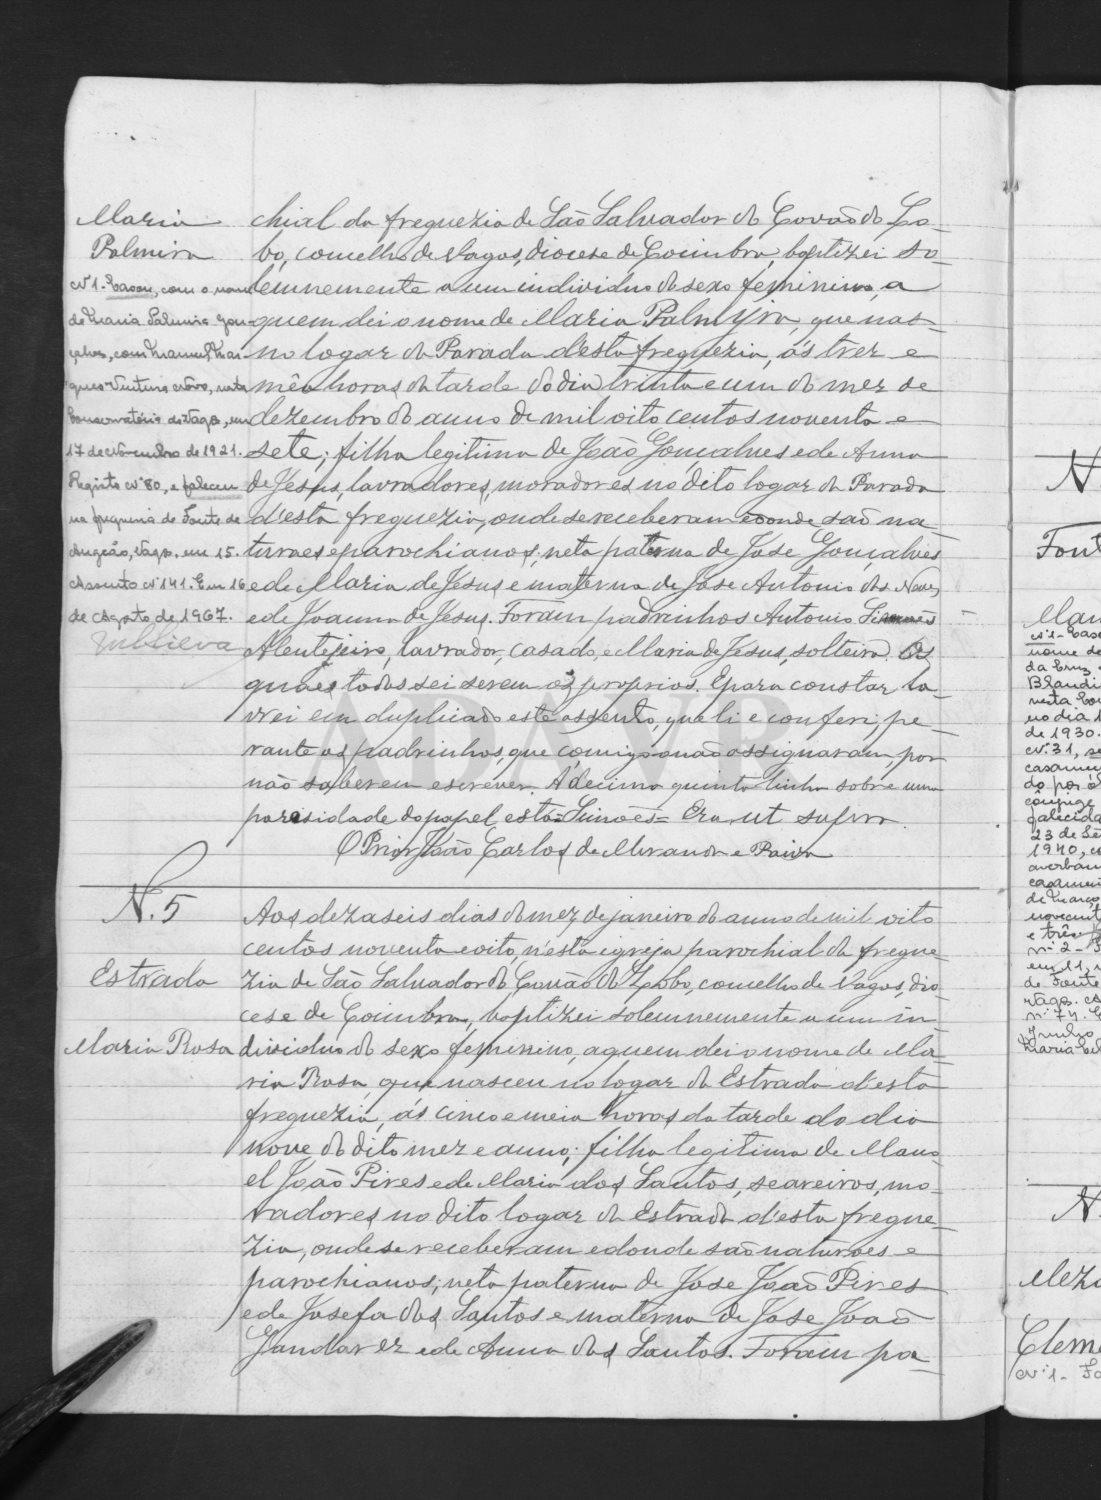 Maria
Palmira
Nº 1 - Casou, com o nome
de Maria Palmira Gon-
çalves, com Manuel Mar-
ques Ventura Novo, nesta
Conservatória de Vagos, em
17 de Novembro de 1921.
Registo nº 80, e faleceu
na freguesia de Fonte de
Angeão, Vagos, em 15.
Assento nº 141. Em 16
de Agosto de 1967.
chial da freguezia de São Salvador do Covão do Lo-
bo, concelho de Vagos, diocese de Coimbra, baptizei so-
lemnemente a um individuo do sexo feminino, a
quem dei o nome de Maria Palmyra, que nas-
no logar da Parada d'esta freguezia, ás trez e
meia horas da tarde do dia trinta e um do mez de
dezembro do anno de mil oito centos noventa e
sete; filha legitima de João Gonçalves e de Anna
de Jesus, lavradores, moradores no dito logar da Parada
d'esta freguezia, onde se receberam e donde são na-
turaes e parochianos; neta paterna de Jose Gonçalves
e de Maria de Jesus e materna de Jose Antonio das Neves
e de Joanna de Jesus. Foram padrinhos Antonio Simoes
Alentejeiro, lavrador, casado, e Maria de Jesus, solteira. Os
quaes todos sei serem os proprios. E para constar la-
vrei em duplicado este assento, que li e conferi, pe-
rante os padrinhos, que comigo não assignaram, por
não saberem escrever. A decima quinta linha sobre uma
porosidade do papel está = Simões = Era ut supra.
O Prior João Carlos de Miranda e Paiva
N. 5
Estrada
Maria Rosa
Aos dezaseis dias do mez de janeiro do anno de mil oito
centos noventa e oito, n'esta igreja parochial da fregue-
zia de São Salvador do Covão do Lobo, concelho de Vagos, dio-
cese de Coimbra, baptizei solemnemente a um in-
dividuo do sexo feminino, a quem dei o nome de Ma-
ria Rosa, que nasceu no logar da Estrada d'esta
freguezia, ás cinco e meia horas da tarde do dia
nove do dito mez e anno; filha legitima de Mano-
el João Pires e de Maria dos Santos, seareiros, mo-
radores no dito logar da Estrada d'esta fregue-
zia, onde se receberam e donde são naturaes e
parochianos; neta paterna de Jose João Pires
e de Josefa dos Santos e materna de Jose João
Gandarez e de Anna dos Santos. Foram pa-
ADAVR